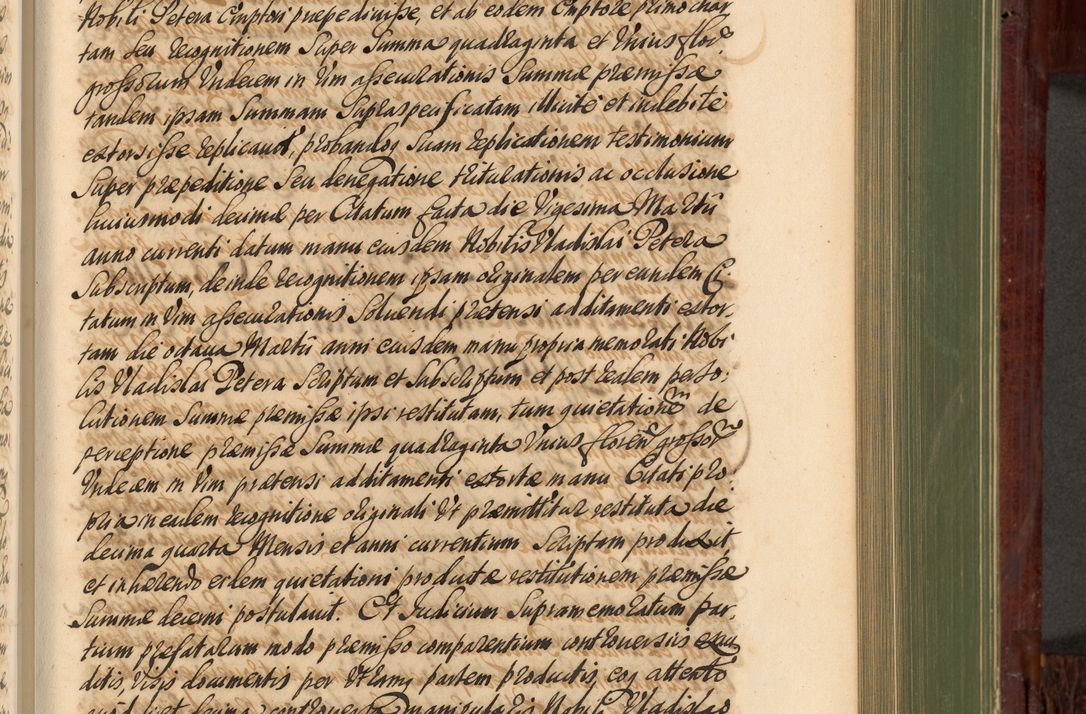 Nobili Petera Emptori praepedivisse, et ab eodem Emptore primo char
tam seu recognitionem super summa quadraginta et unius flor.
grossorum undecim in vim assecurationis summae praemissae
tandem ipsam summam supraspecificatam illicite et indebite
extorsisse replicavit, probandoq suam replicationem testimonium
super praepeditione seu denegatione triturationis ac occlusione
huiusmodi decimae per Citatum facta die vigesima Martii
anno currenti datum manu eiusdem Nobilis Vladislai Petera
subscriptum, deinde recognitionem ipsam originalem per eundem Ci,
tatum in vim assecurationis solvendi praetensi additamenti extor,
tam die octava Martii anni eiusdem manu propria memorati Nobi
lis Vladislai Petera scriptum et subscriptum et post realem perso,
lutionem summae praemissae ipsi restitutam, tum quietationem de
perceptione praemissae summae quadraginta unius floren grossor
undecim in vim praetensi additamenti extortae manu Citati pro,
pria in eadem recognitione originali ut praemittitur restituta die
decima quarta Mensis et anni currentium scriptam produxit
et inhaerendo eidem quietationi productae restitutionem praemissae
summae decerni postulavit. Et Judicium supramemoratum par,
tium praefatarum modo praemisso comparentium controversiis exau
ditis, visis documentis per utramq partem productis, eoq attento
quod licet decima controversa manipularis Nobili Vladislao